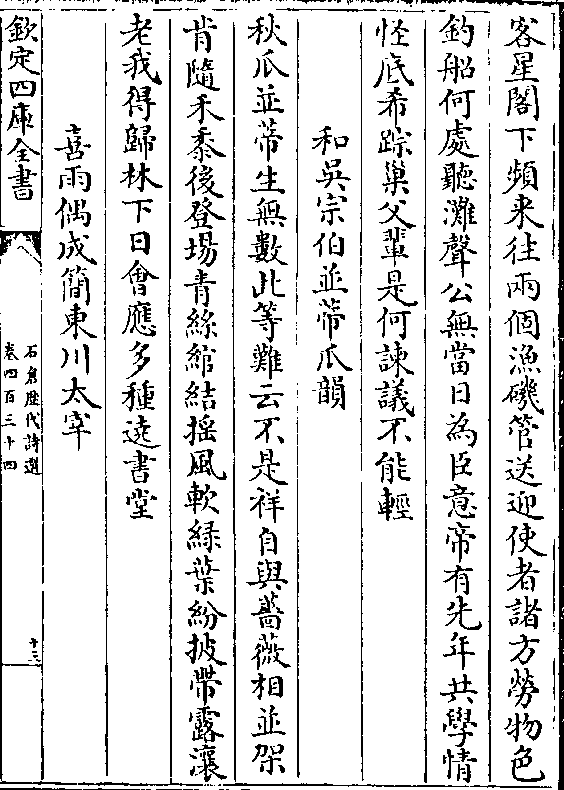 客星閣下頻来往兩個漁磯管送迎使者諸方勞物色
釣船何處聽灘聲公無當日為臣意帝有先年共學情
怪底希踪巢父輩是何諫議不能輕
和吳宗伯並蒂爪韻
秋爪並蒂生無數此等難云不是祥自與薔薇相並架
肯隨禾黍後登場青絲綰結揺風軟緑葉紛披帶露瀼
老我得歸林下日會應多種遶書堂
喜雨偶成簡東川太宰
欽定四庫全書
石倉歴代詩選
卷四百三十四
十三